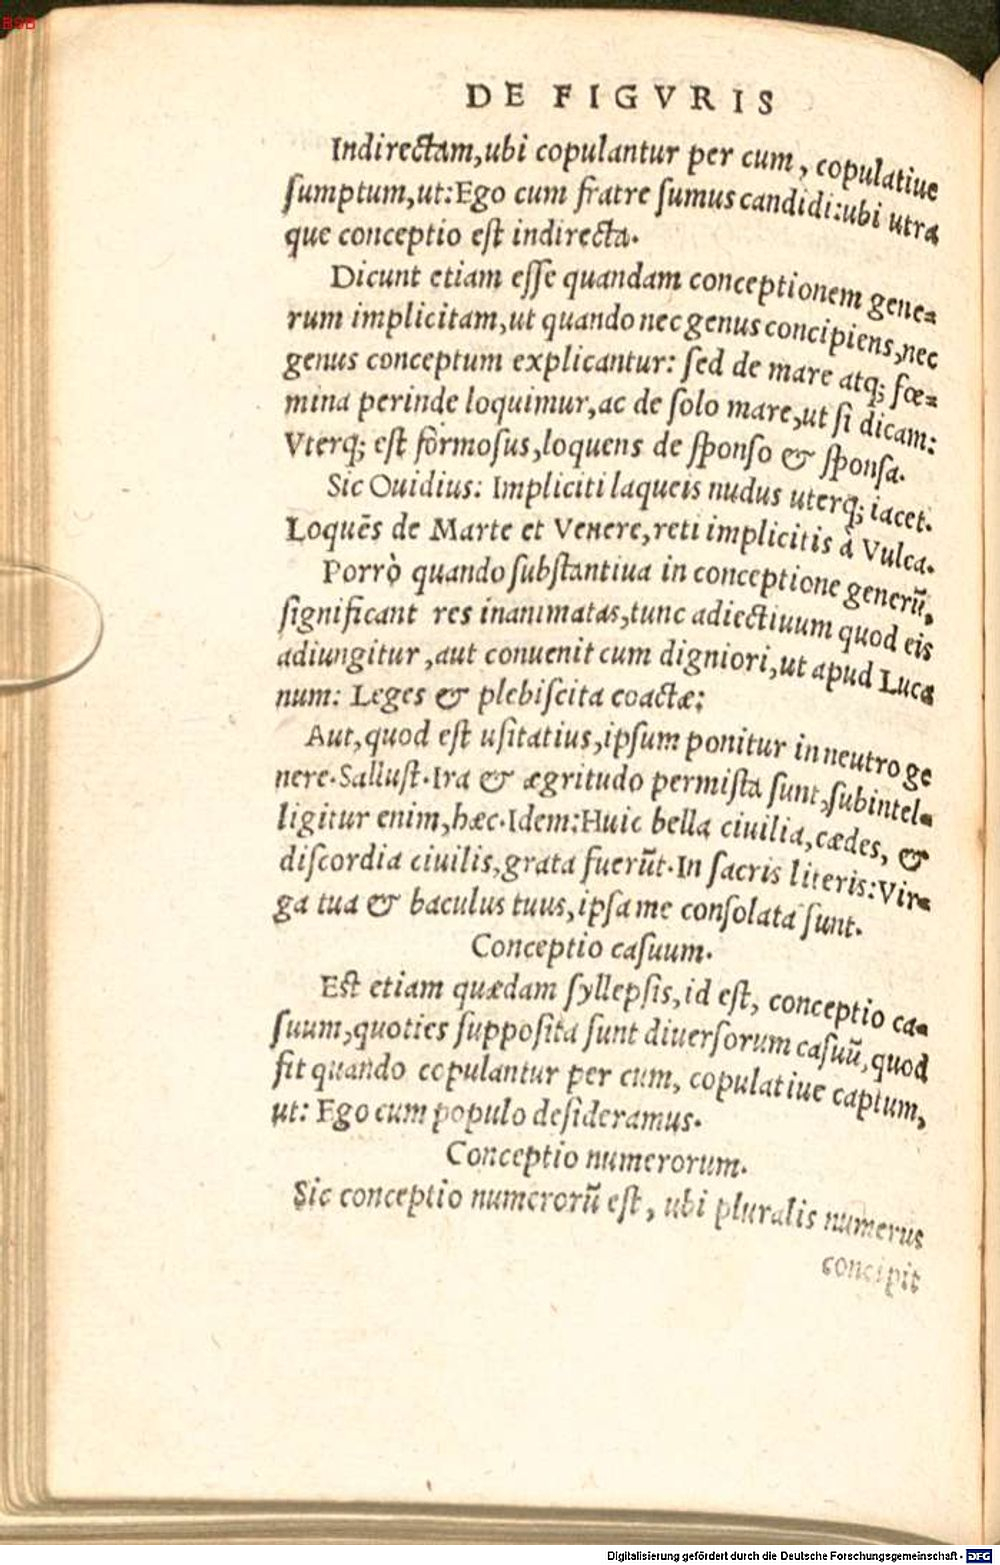 BSB
DE FIGVRIS
Indirectam,ubi copulantur per cum, copulatiue
ſumptum,ut:Ego cum fratre ſumus candidi:ubi utra
que conceptio eſt indirecta.
Dicunt etiam eſſe quandam conceptionem gene=
rum implicitam,ut quando nec genus concipiens,nec
genus conceptum explicantur: ſed de mare atq; fœ=
mina perinde loquimur,ac de ſolo mare,ut ſi dicam:
Vterq; eſt formoſus,loquens de ſponſo & ſponſa.
Sic Ouidius: Impliciti laqueis nudus uterq; iacet.
Loquēs de Marte et Venere,reti implicitis à Vulca.
Porrò quando ſubſtantiua in conceptione generū,
ſignificant res inanimatas,tunc adiectiuum quod eis
adiungitur,aut conuenit cum digniori,ut apud Luca
num: Leges & plebiſcita coactæ:
Aut,quod eſt uſitatius,ipſum ponitur in neutro ge
nere.Salluſt.Ira & ægritudo permiſta ſunt,ſubintel=
ligitur enim,hæc.Idem:Huic bella ciuilia,cædes, &
diſcordia ciuilis,grata fuerūt.In ſacris literis:Vir=
ga tua & baculus tuus,ipſa me conſolata ſunt.
Conceptio caſuum.
Eſt etiam quædam ſyllepſis,id eſt, conceptio ca=
ſuum,quoties ſuppoſita ſunt diuerſorum caſuū,quod
fit quando copulantur per cum, copulatiue captum,
ut: Ego cum populo deſideramus.
Conceptio numerorum.
Sic conceptio numerorū eſt, ubi pluralis numerus
concipit
Digitalisierung gefördert durch die Deutsche Forschungsgemeinschaft - DFG